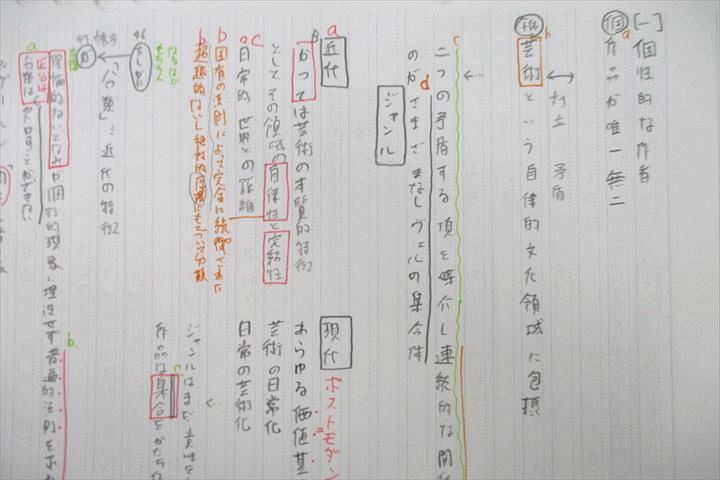 [一] 個性的な作者
個 a 作品が唯一無二
対立 矛盾
b 芸術という自律的文化領域に包摂
c 二つの矛盾する項を媒介し連続的な関
d のがさまざまなレヴェルの集合体
ジャンル
a 近代
B かつては芸術の本質的特徴
としてその領域の自律性と完結性
a c 日常的世界との距離
b 固有の法則によって完全に統御された
b 超越的ないし絶対的原理にもとづいて分類
現代 ポストモダン
あらゆる価値基
芸術の日常化
日常の芸術化
ジャンルはまだ責味を
作品は集合をかたちな
「分類」…近代の特徴
理論的ないとなみが個別的現象に埋没せず普遍的法則を求め
a 分類は欠かすことができない
b